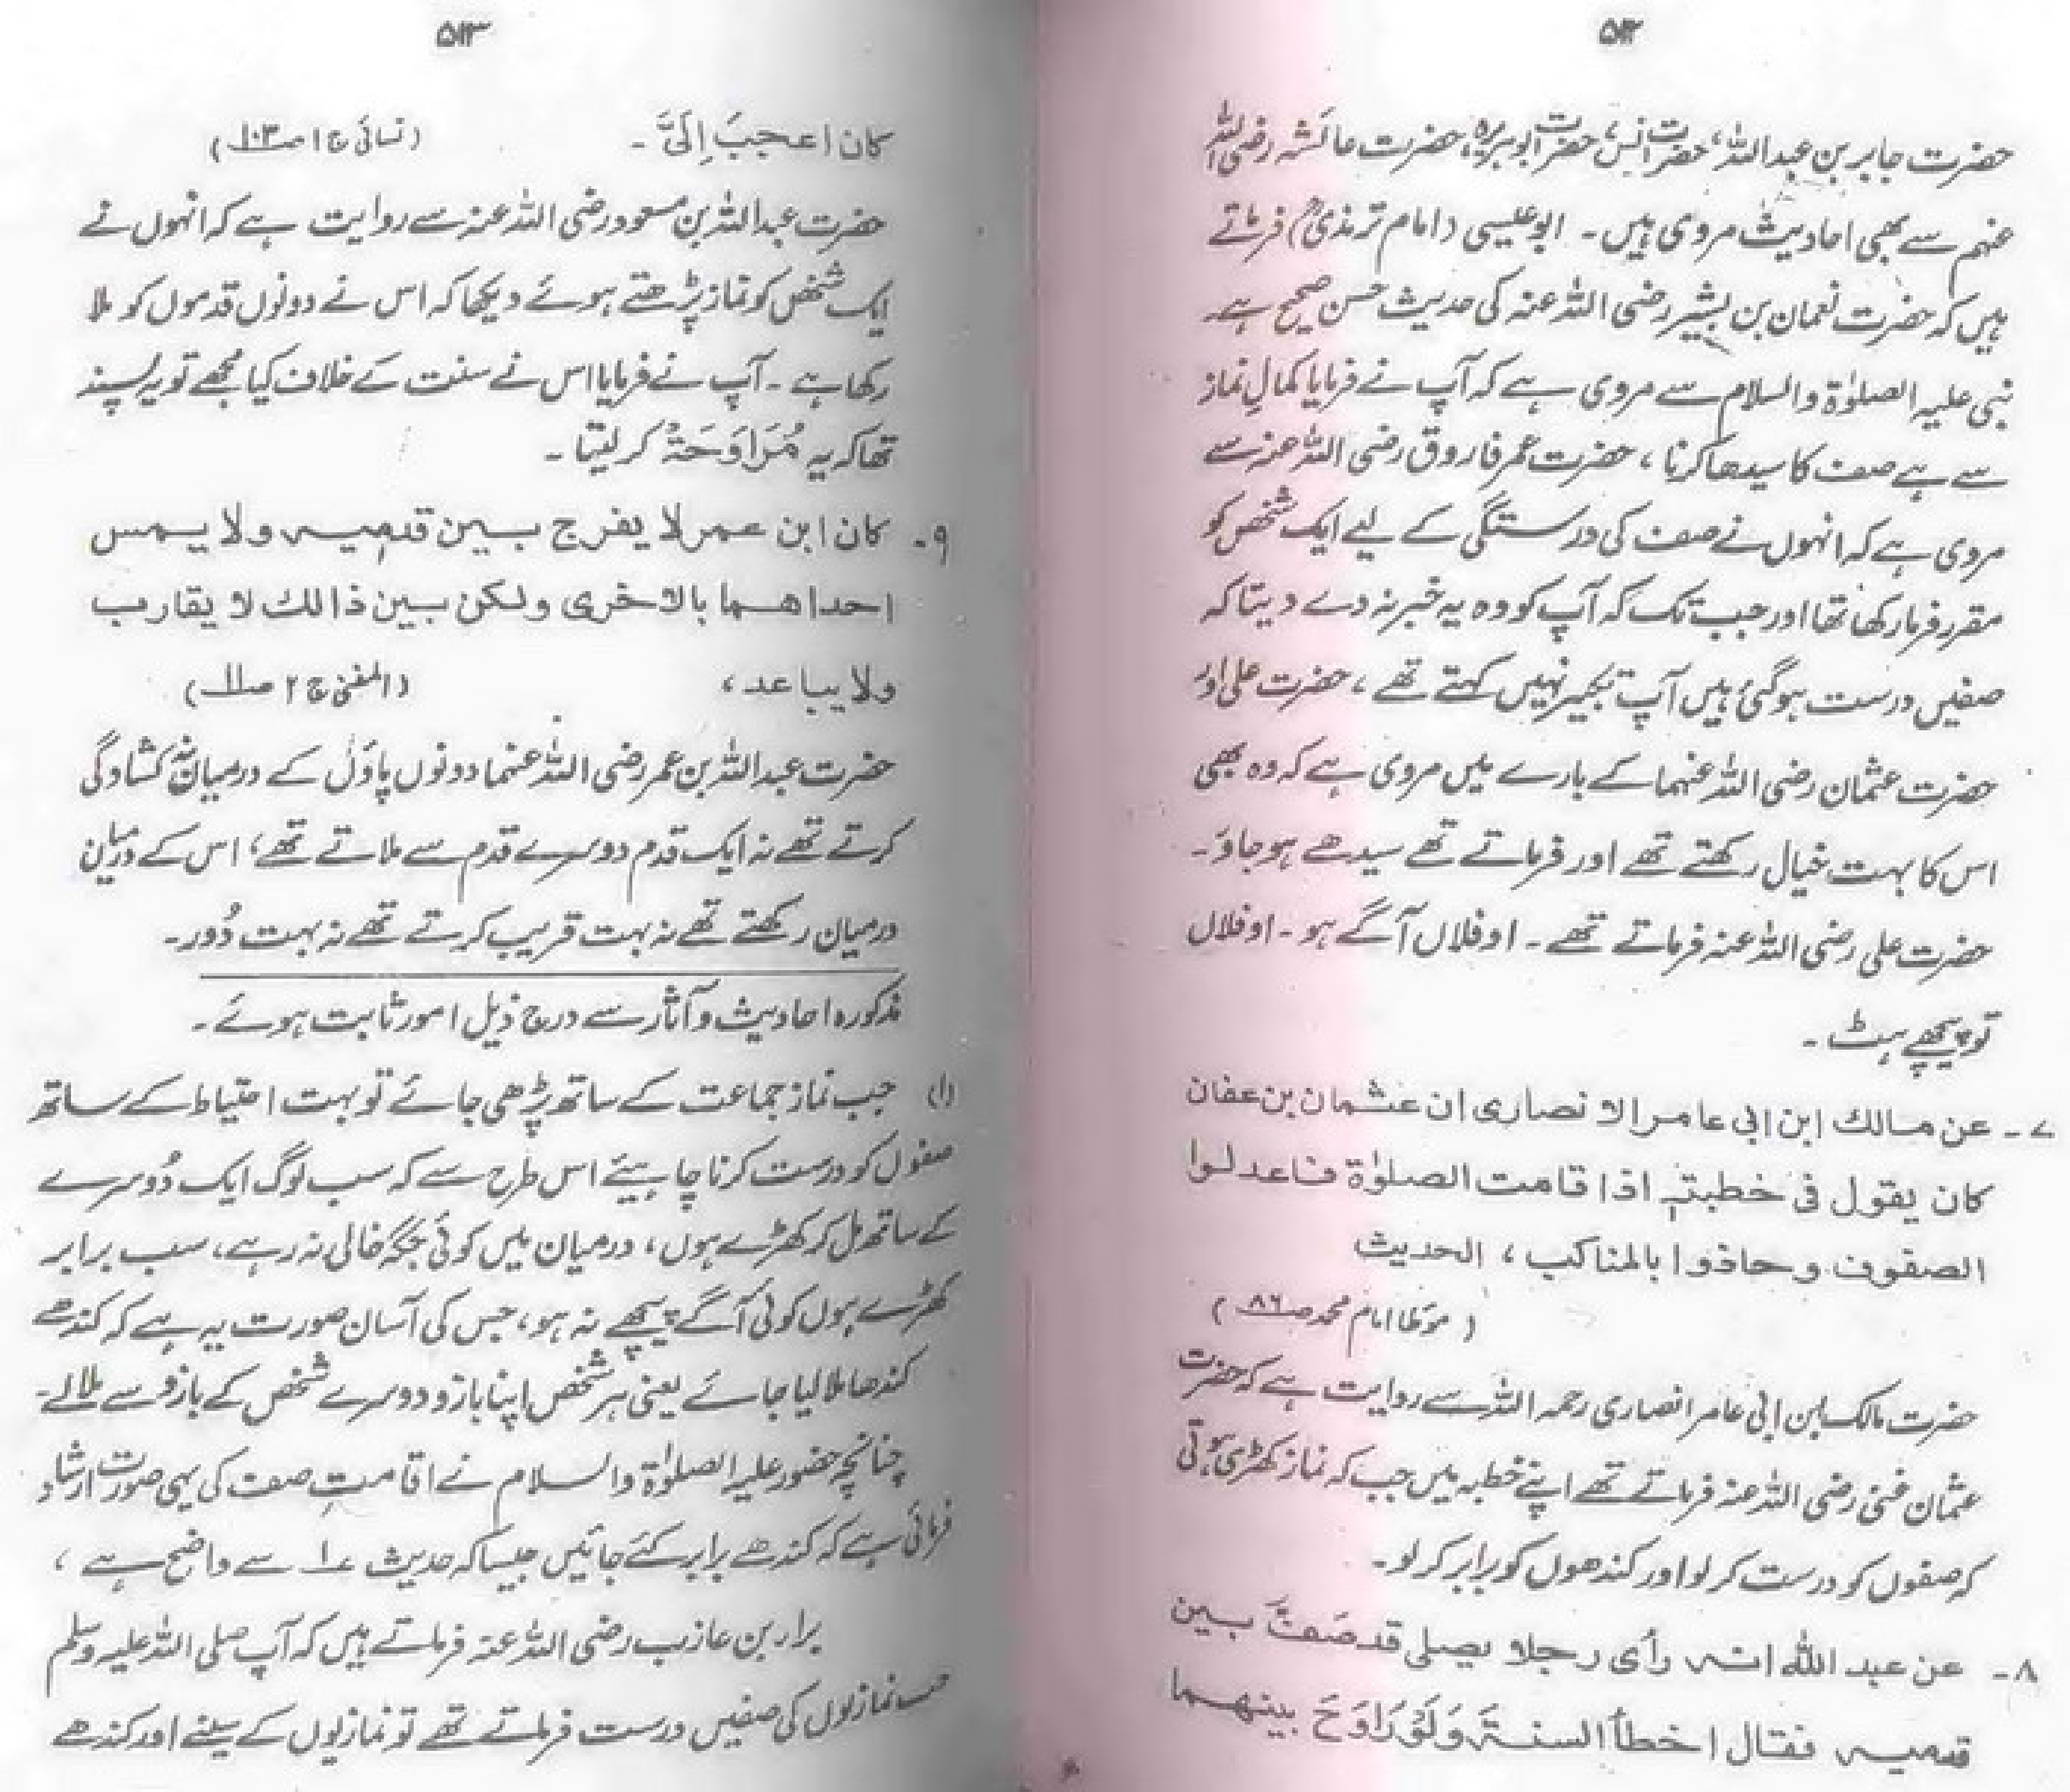 ۵۱۲
حضرت جابر بن عبداللہ، حضرت انس، حضرت ابوہریرہ، حضرت عائشہ رضی اللہ
عنہم سے بھی احادیث مروی ہیں۔ ابو عیسی (امام ترمذیؒ) فرماتے
ہیں کہ حضرت نعمان بن بشیر رضی اللہ عنہ کی حدیث حسن صحیح ہے۔
نبی علیہ الصلوٰۃ والسلام سے مروی ہے کہ آپ نے فرمایا کمالِ نماز
سے ہے صف کا سیدھا کرنا ، حضرت عمر فاروق رضی اللہ عنہ سے
مروی ہے کہ انہوں نے صف کی درستگی کے لیے ایک شخص کو
مقرر فرما رکھا تھا اور جب تک کہ آپ کو وہ یہ خبر نہ دے دیتا کہ
صفیں درست ہوگئی ہیں آپ تکبیر نہیں کہتے تھے ، حضرت علی اور
حضرت عثمان رضی اللہ عنہما کے بارے میں مروی ہے کہ وہ بھی
اس کا بہت خیال رکھتے تھے اور فرماتے تھے سیدھے ہو جاؤ۔
حضرت علی رضی اللہ عنہ فرماتے تھے ۔ او فلاں آگے ہو ۔ او فلاں
تو پیچھے ہٹ ۔
۷ ۔ عن مالك ابن ابی عامر الانصاری ان عثمان بن عفان
كان يقول فی خطبتہ اذا قامت الصلوٰة فاعدلوا
الصفوف وحاذوا بالمناكب ، الحديث
( مؤطا امام محمد صـ۸۶ )
حضرت مالک ابن ابی عامر انصاری رحمہ اللہ سے روایت ہے کہ حضرت
عثمان غنی رضی اللہ عنہ فرماتے تھے اپنے خطبہ میں جب کہ نماز کھڑی ہوتی
کہ صفوں کو درست کر لو اور کندھوں کو برابر کر لو ۔
۸ ۔ عن عبد اللہ انہ رأى رجلا يصلی قد صَفَّ بين
قدميہ فقال اخطأ السنۃ وَلَوْ رَاوَحَ بينهما
۵۱۳
كان اعجبَ اِلَیَّ ۔ ( نسائی ج ۱ صـ۱۰۳ )
حضرت عبداللہ بن مسعود رضی اللہ عنہ سے روایت ہے کہ انہوں نے
ایک شخص کو نماز پڑھتے ہوئے دیکھا کہ اس نے دونوں قدموں کو ملا
رکھا ہے ۔ آپ نے فرمایا اس نے سنت کے خلاف کیا مجھے تو یہ پسند
تھا کہ یہ مُرَاوَحَۃْ کر لیتا ۔
۹ ۔ كان ابن عمر لا يفرج بين قدميہ ولا يمس
احداهما بالاخرى ولكن بين ذالك لا يقارب
ولا يباعد ، ( المغنی ج ۲ صـ۱۱ )
حضرت عبداللہ بن عمر رضی اللہ عنہما دونوں پاؤں کے درمیان نہ کشادگی
کرتے تھے نہ ایک قدم دوسرے قدم سے ملاتے تھے ، اس کے درمیان
درمیان رکھتے تھے نہ بہت قریب کرتے تھے نہ بہت دُور۔
مذکورہ احادیث و آثار سے درج ذیل امور ثابت ہوئے ۔
(۱) جب نماز جماعت کے ساتھ پڑھی جائے تو بہت احتیاط کے ساتھ
صفوں کو درست کرنا چاہیئے اس طرح سے کہ سب لوگ ایک دُوسرے
کے ساتھ مل کر کھڑے ہوں ، درمیان میں کوئی جگہ خالی نہ رہے ، سب برابر
کھڑے ہوں کوئی آگے پیچھے نہ ہو ، جس کی آسان صورت یہ ہے کہ کندھے
کندھا ملا لیا جائے یعنی ہر شخص اپنا بازو دوسرے شخص کے بازو سے ملا لے۔
چنانچہ حضور علیہ الصلوٰۃ والسلام نے اقامتِ صف کی یہی صورت ارشاد
فرمائی ہے کہ کندھے برابر کئے جائیں جیسا کہ حدیث ۱ سے واضح ہے ،
براء بن عازب رضی اللہ عنہ فرماتے ہیں کہ آپ صلی اللہ علیہ وسلم
جب نمازیوں کی صفیں درست فرماتے تھے تو نمازیوں کے سینے اور کندھے